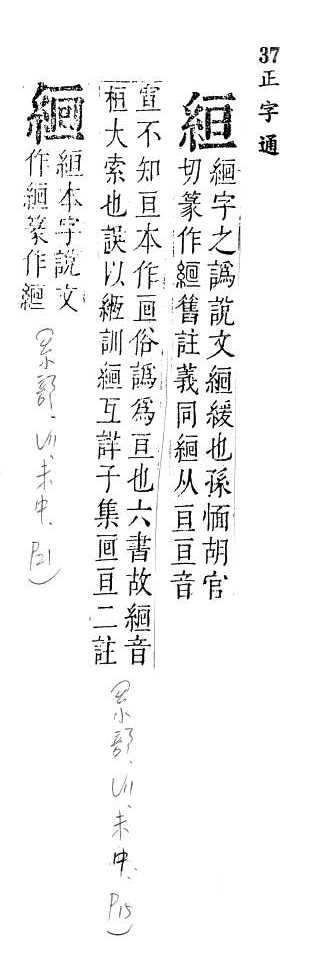 37 正字通
絙
字之譌說文緩也孫愐胡官
切篆作舊註義同从亘亘音
宣不知亘本作𠄢俗譌爲亘也六書故音
桓大索也誤以緪訓互詳子集𠄢亘二註
糸部. 未中. P15)
絙本字說文
作篆作
糸部. 未中. P21)